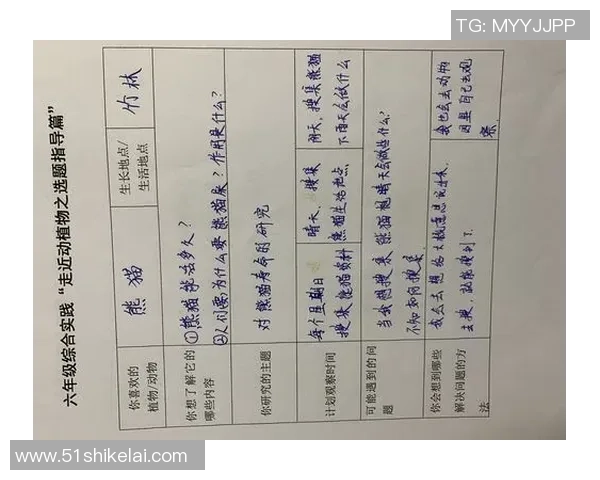 TG: MYYJJPP
六年级综合实践“走近动植物之选题指导篇”
你喜欢的
植物/动物
熊猫
生长地点/
生活地点
竹林
你想了解它的
哪些内容
①熊猫能活多久?
②人们要为什么要熊猫来?作用是什么?
你研究的主题
对熊猫寿命的研究
计划观察时间
每个星期日
搜集熊猫资料
晴天,搜集
熊猫生活地点
阴天,搜集熊猫
下雨天会做什么
可能遇到的问
题
当我想搜集熊猫晴天会做些什么?
不知如何搜集
你会想到哪些
解决问题的方
法
我会去想把大概意思
去搜,就能搜到了.
我也会去动物
园里自己去观
察.
www.51shikelai.com